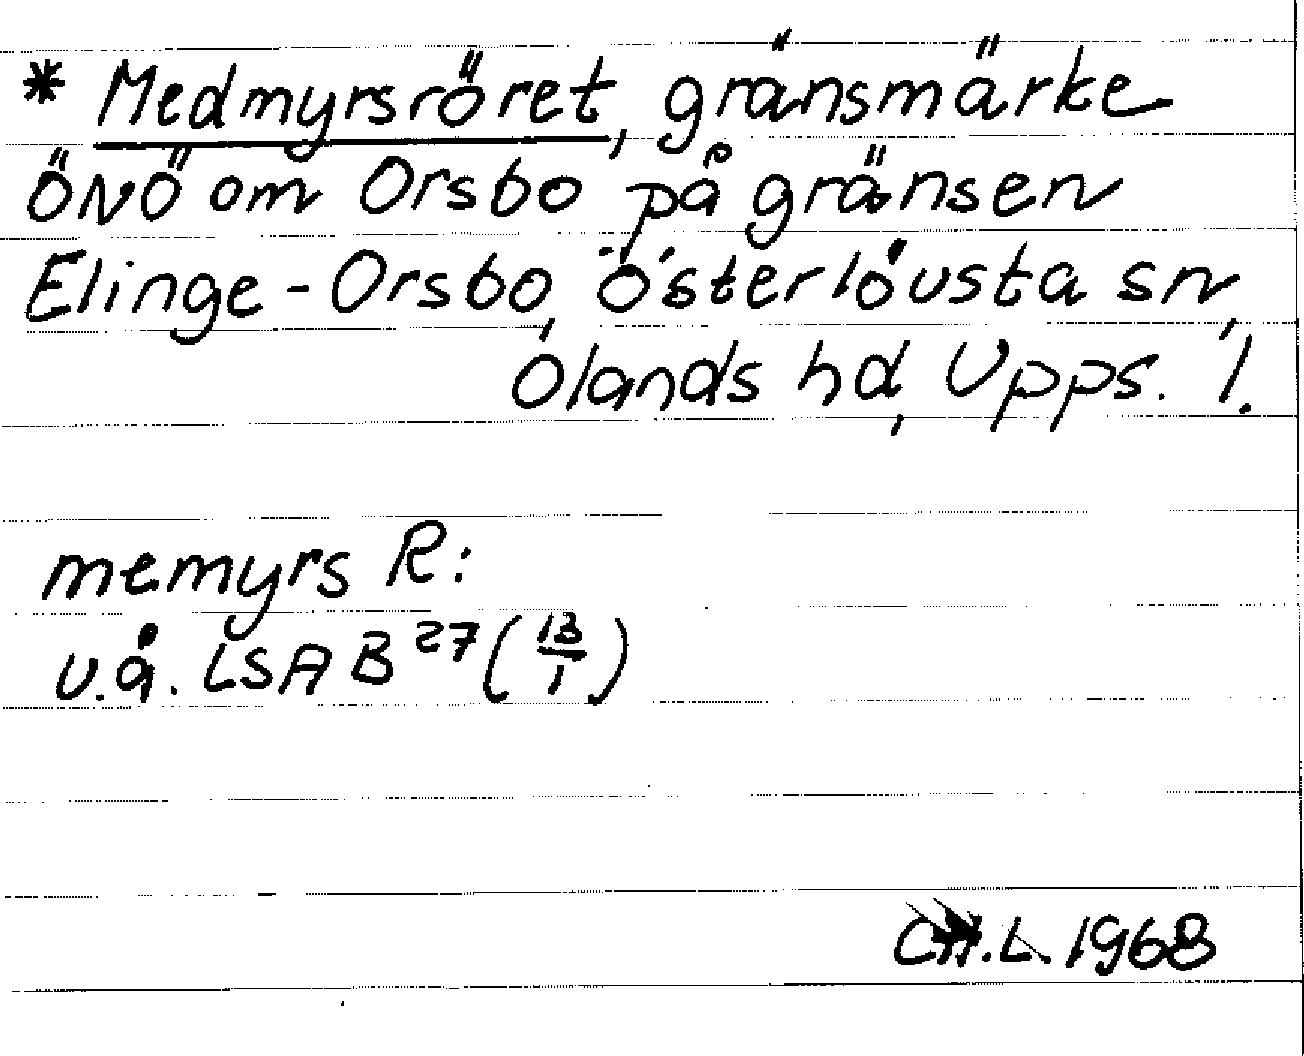 * Medmyrsröret, gränsmärke
ÖNÖ om Orsbo på gränsen
Elinge - Orsbo, Österlövsta sn,
Olands hd, Upps. l.
memyrs R:
u.å. LSA B 27 (13/1)
C.H.L. 1968